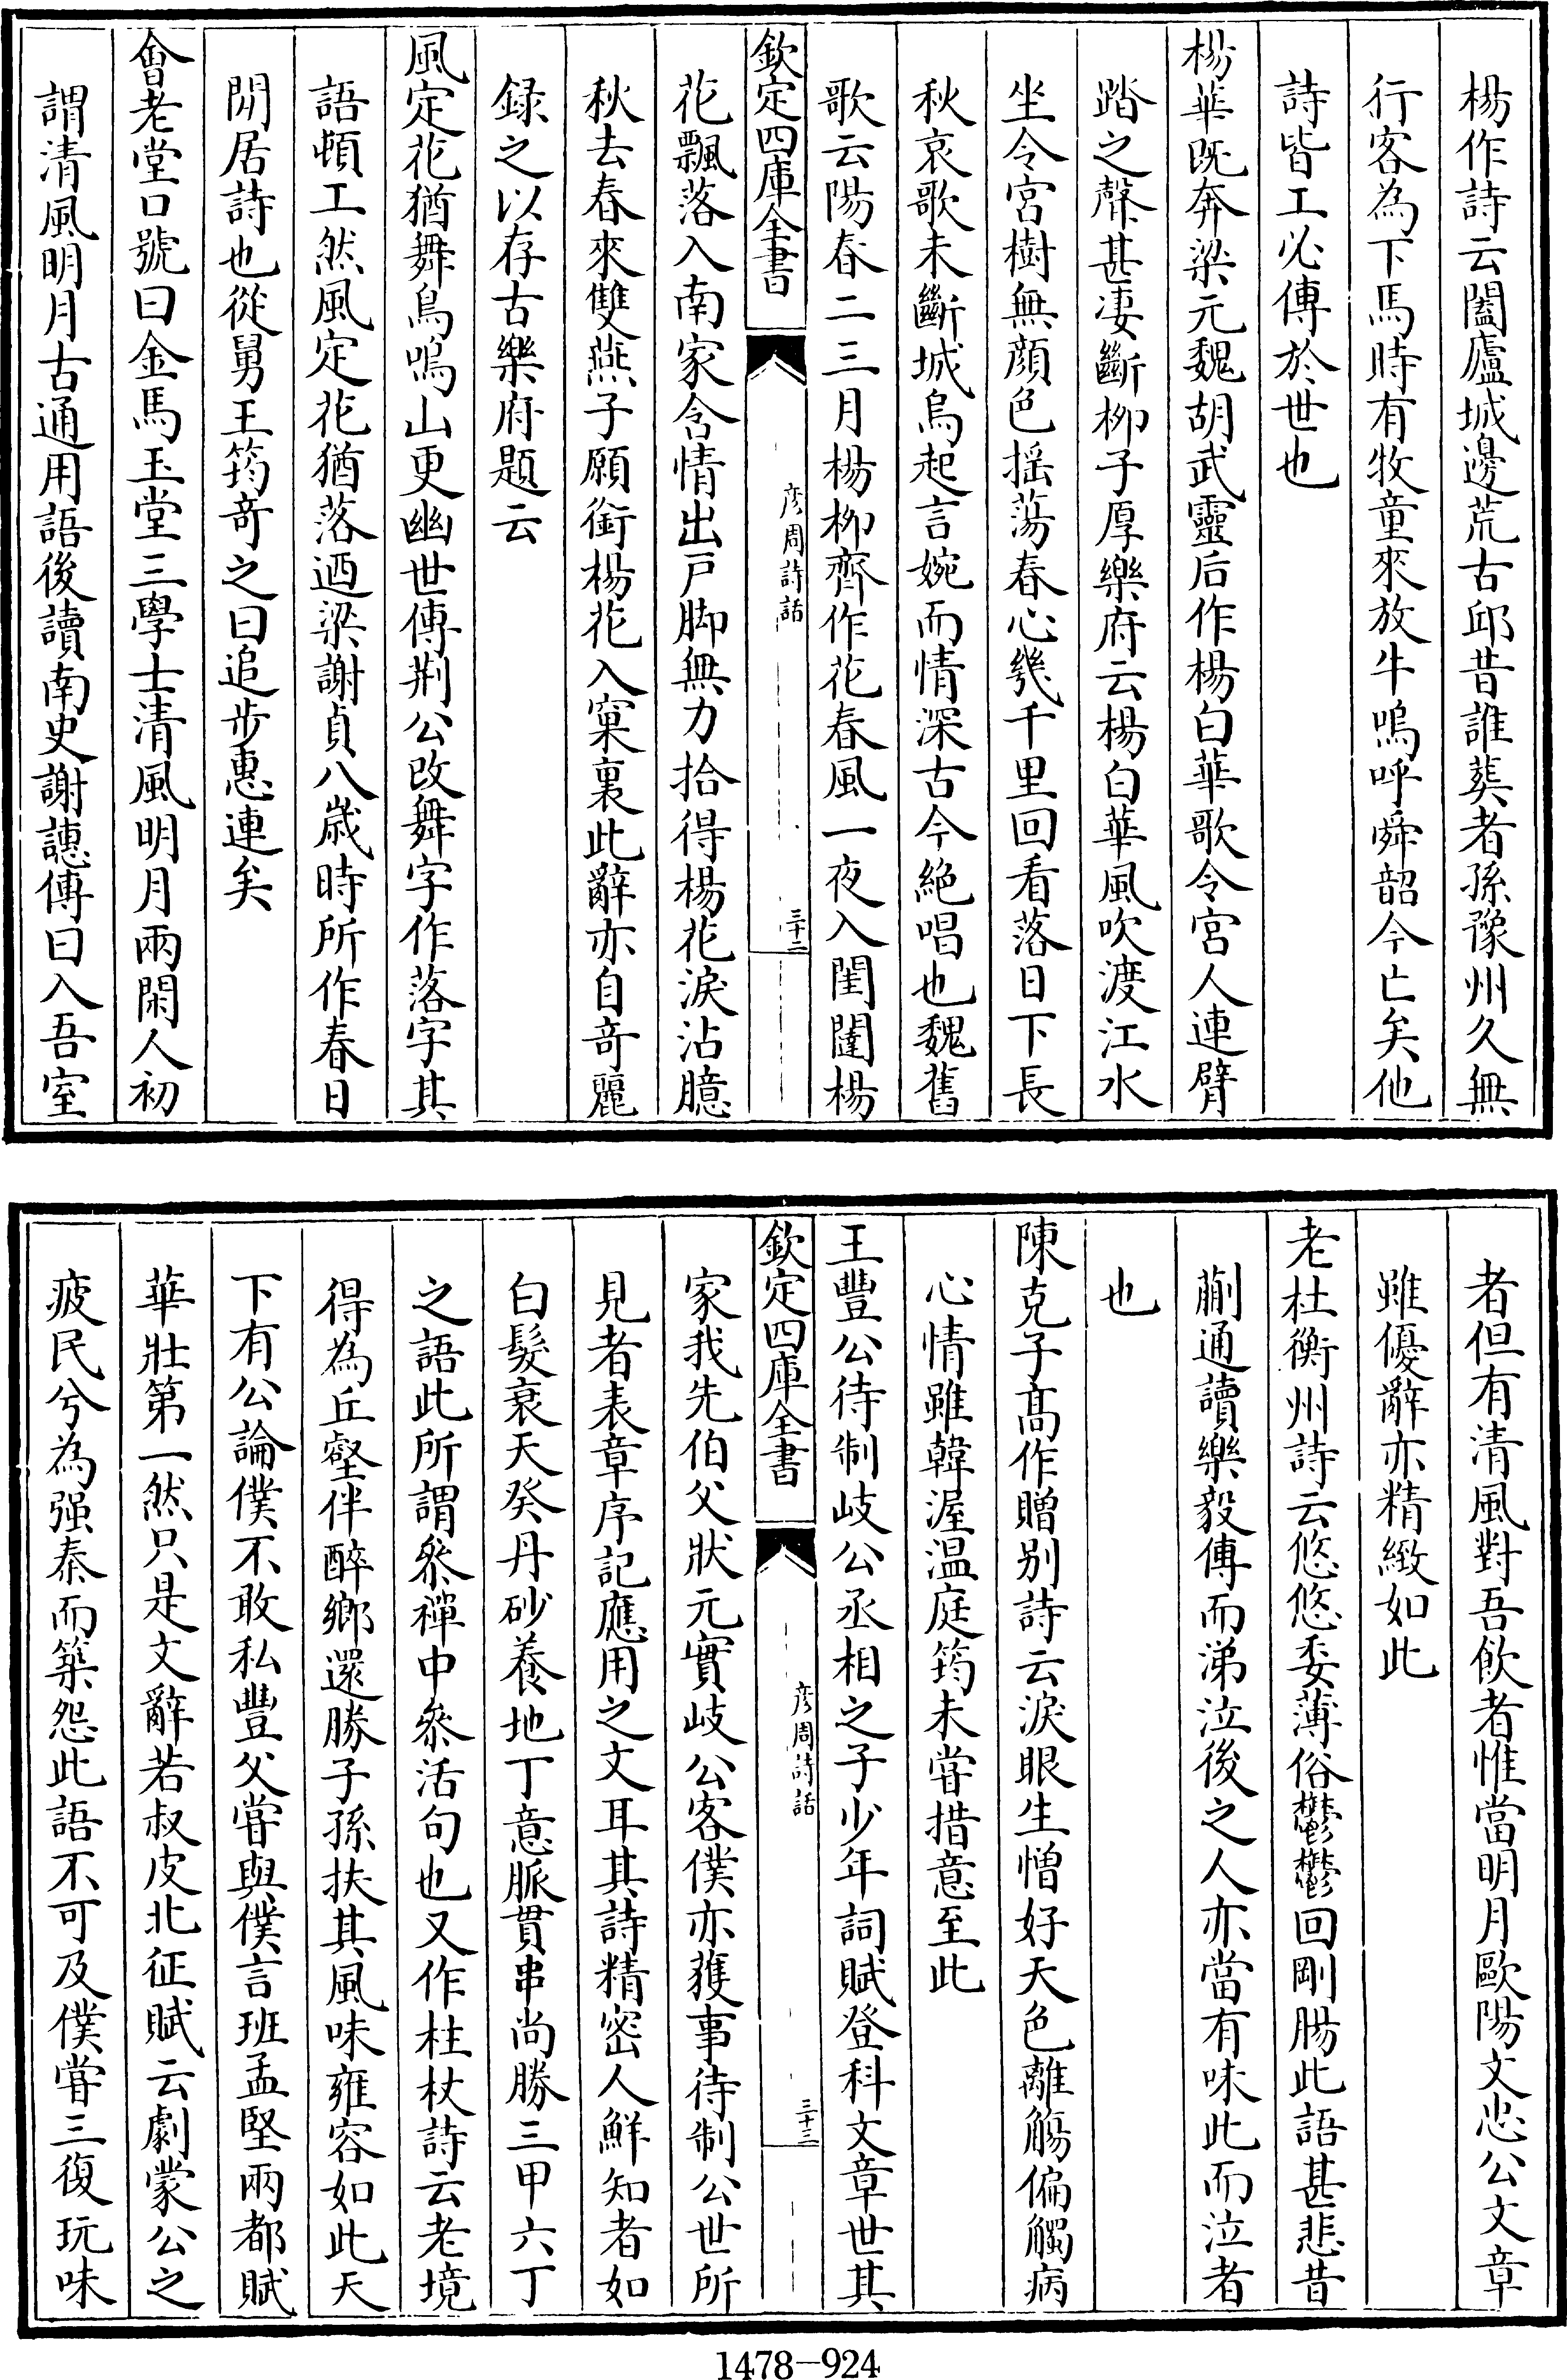 楊作詩云闔廬城邊荒古邱昔誰葬者孫豫州久無
行客為下馬時有牧童來放牛嗚呼舜韶今亡矣他
詩皆工必傳於世也
楊華既奔梁元魏胡武靈后作楊白華歌令宮人連臂
踏之聲甚凄斷柳子厚樂府云楊白華風吹渡江水
坐令宮樹無顔色揺蕩春心幾千里回看落日下長
秋哀歌未斷城烏起言婉而情深古今絶唱也魏舊
歌云陽春二三月楊柳齊作花春風一夜入閨闥楊
欽定四庫全書
彦周詩話
三十二
花飄落入南家含情出戸脚無力拾得楊花淚沾臆
秋去春來雙燕子願銜楊花入窠裏此辭亦自竒麗
録之以存古樂府題云
風定花猶舞鳥鳴山更幽世傳荆公改舞字作落字其
語頓工然風定花猶落迺梁謝貞八歳時所作春日
閒居詩也從舅王筠竒之曰追步惠連矣
會老堂口號曰金馬玉堂三學士清風明月兩閑人初
謂清風明月古通用語後讀南史謝譓傳曰入吾室
者但有清風對吾飲者惟當明月歐陽文忠公文章
雖優辭亦精緻如此
老杜衡州詩云悠悠委薄俗鬱鬱回剛腸此語甚悲昔
蒯通讀樂毅傳而涕泣後之人亦當有味此而泣者
也
陳克子髙作贈别詩云淚眼生憎好天色離觴偏觸病
心情雖韓渥温庭筠未嘗措意至此
王豐公待制岐公丞相之子少年詞賦登科文章世其
欽定四庫全書
彦周詩話
三十三
家我先伯父狀元實岐公客僕亦獲事待制公世所
見者表章序記應用之文耳其詩精密人鮮知者如
白髮衰天癸丹砂養地丁意脈貫串尚勝三甲六丁
之語此所謂叅禪中叅活句也又作柱杖詩云老境
得為丘壑伴醉鄉還勝子孫扶其風味雍容如此天
下有公論僕不敢私豐父嘗與僕言班孟堅兩都賦
華壯第一然只是文辭若叔皮北征賦云劇蒙公之
疲民兮為强秦而築怨此語不可及僕嘗三復玩味
1478-924